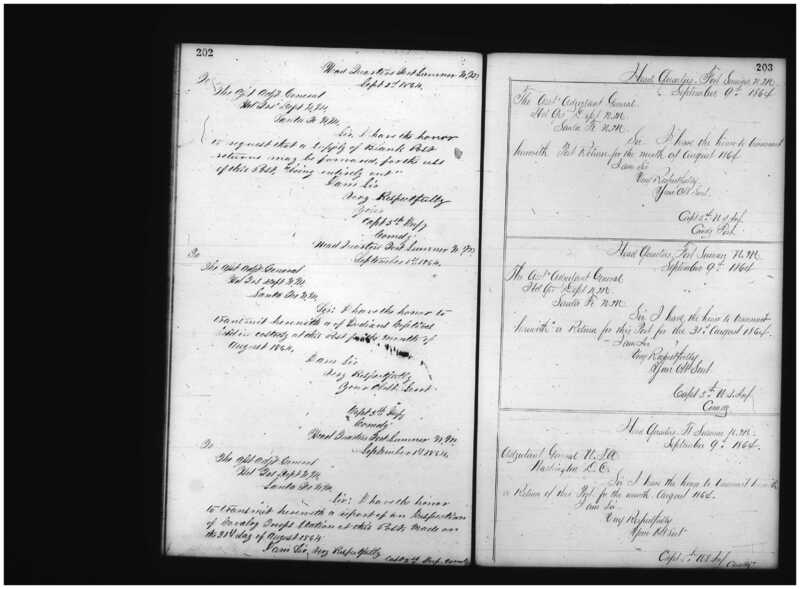 202
Head Quarters Fort Sumner N.M.
Sept 2d 1864.
To
The Asst Adjt General
Hd Qrs Dept N.M.
Santa Fe N.M.
Sir I have the honor
to request that a supply of Blank Post
returns may be forwared, for the use
of this Post, "being entirely out"
I am Sir
Very Respectfully
Your
Capt 5th Infy
Comdg
Head Quarters Fort Sumner N.M.
September 1st 1864.
To
The Asst Adjt General
Hd Qrs Dept N.M.
Santa Fe N.M.
Sir: I have the honor to
transmit herewith a of Indians Captives
held in custody at this Post for the month of
August 1864,
I am Sir
Very Respectfully
Your Obdt. Servt
Capt 5th Infy
Comdg
Head Quarters Fort Sumner N.M.
September 1st 1864.
To
The Asst Adjt General
Hd Qrs Dept N.M.
Santa Fe N.M.
Sir: I have the honor
to transmit herewith a report of an Inspection
of Cavalry Troops Station at this Post, made on
the 31st day of August 1864
I am Sir, Very Respectfully
Capt 5th Infy Comdg
203
Head Quarters Fort Sumner N.M.
September 9th 1864
The Asst Adjutant General
Hd Qrs Dept N.M.
Santa Fe N.M.
Sir I have the honor to transmit
herewith Post Return for the month of August 1864
I am Sir
Very Respectfully
Your Obt Servt.
Capt 5th U.S. Inf.
Comdg Post.
Head Quarters, Fort Sumner N.M.
September 9th 1864
The Asst Adjutant General
Hd Qrs Dept N.M.
Santa Fe N.M.
Sir I have the honor to transmit
herewith a Return for this Post for the 31st August 1864
I am Sir
Very Respectfully
Your Obt Servt
Capt 5th U.S. Inf
Comdg
Head Quarters Ft Sumner N.M.
September 9th 1864
Adjutant General U.S.A
Washington D.C.
Sir I have the honor to transmit herewith
a Return of this Post for the month August 1864.
I am Sir
Very Respectfully
Your Obt Servt
Capt 5th U.S Inf
Comdg